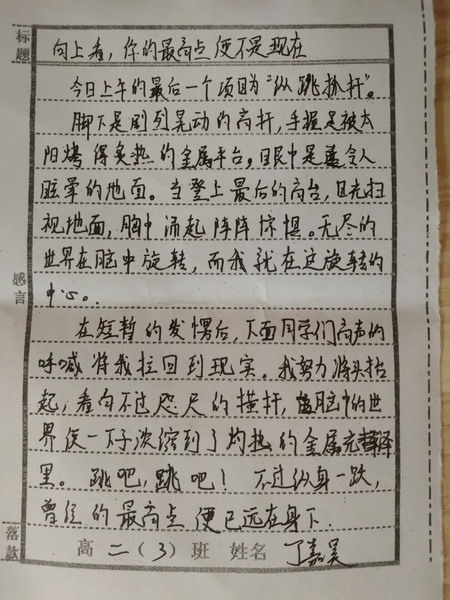 标题
向上看，你的最高点便不是现在
今日上午的最后一个项目为“纵跳抓杆”。
脚下是剧烈晃动的高杆，手握是被太
阳烤得炙热的金属平台。眼中是令人
眩晕的地面。当登上最后的高台，目光扫
视地面，胸中涌起阵阵惊惧。无尽的
世界在脑中旋转，而我就在这旋转的
中心。
感言
在短暂的发愣后，下面同学们高声的
呼喊将我拉回到现实。我努力将头抬
起，看向不过咫尺的横杆，脑中的世
界便一下子浓缩到了灼热的金属光泽
里。跳吧，跳吧！不过纵身一跃，
曾经的最高点便已远在身下.
落款
高二（3）班 姓名 丁嘉昊